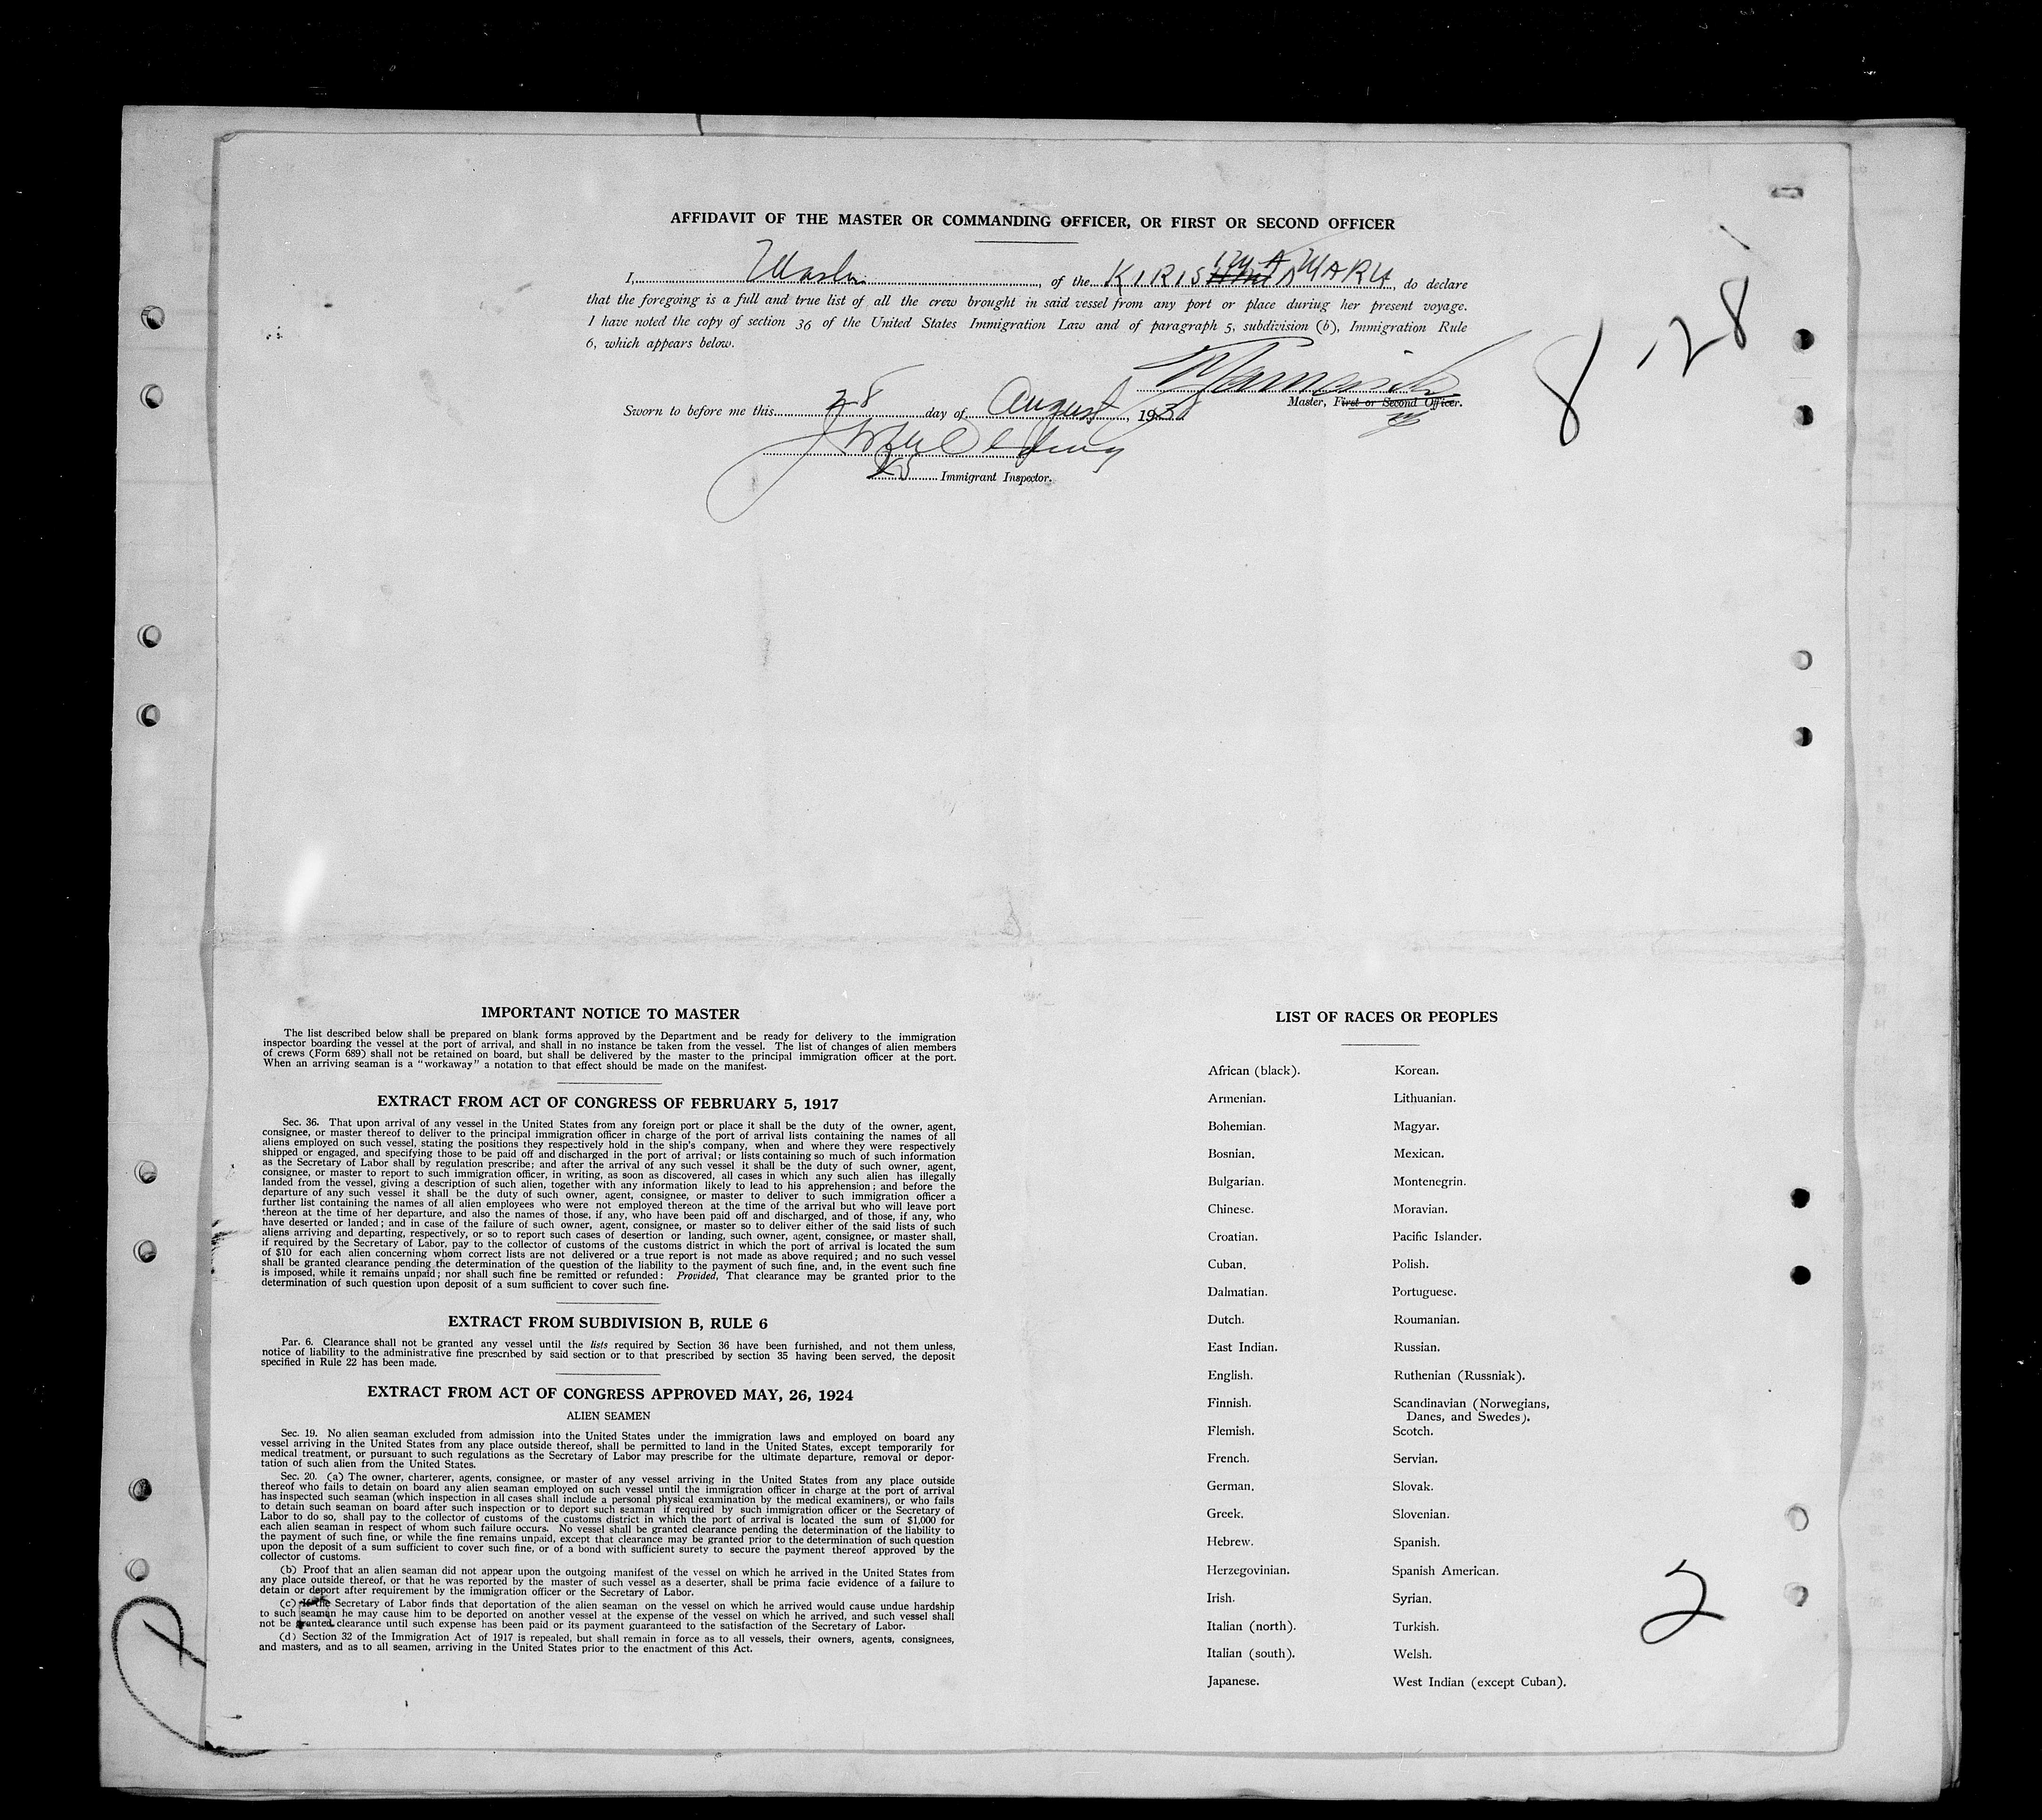 AFFIDAVIT OF THE MASTER OR COMMANDING OFFICER, OR FIRST OR SECOND OFFICER
I, Master of the KIRISIMA MARU, do declare
that the foregoing is a full and true list of all the crew brought in said vessel from any port or place during her present voyage.
I have noted the copy of section 36 of the United States Immigration Law and of paragraph 5, subdivision (b), Immigration Rule
6, which appears below.
8-28
Master, First or Second Officer.
Sworn to before me this 28 day of August, 1938
Immigrant Inspector.
IMPORTANT NOTICE TO MASTER
The list described below shall be prepared on blank forms approved by the Department and be ready for delivery to the immigration
inspector boarding the vessel at the port of arrival, and shall in no instance be taken from the vessel. The list of changes of alien members
of crews (Form 689) shall not be retained on board, but shall be delivered by the master to the principal immigration officer at the port.
When an arriving seaman is a "workaway" a notation to that effect should be made on the manifest.
EXTRACT FROM ACT OF CONGRESS OF FEBRUARY 5, 1917
Sec. 36. That upon arrival of any vessel in the United States from any foreign port or place it shall be the duty of the owner, agent,
consignee, or master thereof to deliver to the principal immigration officer in charge of the port of arrival lists containing the names of all
aliens employed on such vessel, stating the positions they respectively hold in the ship's company, when and where they were respectively
shipped or engaged, and specifying those to be paid off and discharged in the port of arrival; or lists containing so much of such information
as the Secretary of Labor shall by regulation prescribe; and after the arrival of any such vessel it shall be the duty of such owner, agent,
consignee, or master to report to such immigration officer, in writing, as soon as discovered, all cases in which any such alien has illegally
landed from the vessel, giving a description of such alien, together with any information likely to lead to his apprehension; and before the
departure of any such vessel it shall be the duty of such owner, agent, consignee, or master to deliver to such immigration officer a
further list containing the names of all alien employees who were not employed thereon at the time of the arrival but who will leave port
thereon at the time of her departure, and also the names of those, if any, who have been paid off and discharged, and of those, if any, who
have deserted or landed; and in case of the failure of such owner, agent, consignee, or master so to deliver either of the said lists of such
aliens arriving and departing, respectively, or so to report such cases of desertion or landing, such owner, agent, consignee, or master shall,
if required by the Secretary of Labor, pay to the collector of customs of the customs district in which the port of arrival is located the sum
of $10 for each alien concerning whom correct lists are not delivered or a true report is not made as above required; and no such vessel
shall be granted clearance pending the determination of the question of the liability to the payment of such fine, and, in the event such fine
is imposed, while it remains unpaid; nor shall such fine be remitted or refunded: Provided, That clearance may be granted prior to the
determination of such question upon deposit of a sum sufficient to cover such fine.
EXTRACT FROM SUBDIVISION B, RULE 6
Par. 6. Clearance shall not be granted any vessel until the lists required by Section 36 have been furnished, and not them unless,
notice of liability to the administrative fine prescribed by said section or to that prescribed by section 35 having been served, the deposit
specified in Rule 22 has been made.
EXTRACT FROM ACT OF CONGRESS APPROVED MAY, 26, 1924
ALIEN SEAMEN
Sec. 19. No alien seaman excluded from admission into the United States under the immigration laws and employed on board any
vessel arriving in the United States from any place outside thereof, shall be permitted to land in the United States, except temporarily for
medical treatment, or pursuant to such regulations as the Secretary of Labor may prescribe for the ultimate departure, removal or depor-
tation of such alien from the United States.
Sec. 20. (a) The owner, charterer, agents, consignee, or master of any vessel arriving in the United States from any place outside
thereof who fails to detain on board any alien seaman employed on such vessel until the immigration officer in charge at the port of arrival
has inspected such seaman (which inspection in all cases shall include a personal physical examination by the medical examiners), or who fails
to detain such seaman on board after such inspection or to deport such seaman if required by such immigration officer or the Secretary of
Labor to do so, shall pay to the collector of customs of the customs district in which the port of arrival is located the sum of $1,000 for
each alien seaman in respect of whom such failure occurs. No vessel shall be granted clearance pending the determination of the liability to
the payment of such fine, or while the fine remains unpaid, except that clearance may be granted prior to the determination of such question
upon the deposit of a sum sufficient to cover such fine, or of a bond with sufficient surety to secure the payment thereof approved by the
collector of customs.
(b) Proof that an alien seaman did not appear upon the outgoing manifest of the vessel on which he arrived in the United States from
any place outside thereof, or that he was reported by the master of such vessel as a deserter, shall be prima facie evidence of a failure to
detain or deport after requirement by the immigration officer or the Secretary of Labor.
(c) If the Secretary of Labor finds that deportation of the alien seaman on the vessel on which he arrived would cause undue hardship
to such seaman he may cause him to be deported on another vessel at the expense of the vessel on which he arrived, and such vessel shall
not be granted clearance until such expense has been paid or its payment guaranteed to the satisfaction of the Secretary of Labor.
(d) Section 32 of the Immigration Act of 1917 is repealed, but shall remain in force as to all vessels, their owners, agents, consignees,
and masters, and as to all seamen, arriving in the United States prior to the enactment of this Act.
LIST OF RACES OR PEOPLES
African (black).
Armenian.
Bohemian.
Bosnian.
Bulgarian.
Chinese.
Croatian.
Cuban.
Dalmatian.
Dutch.
East Indian.
English.
Finnish.
Flemish.
French.
German.
Greek.
Hebrew.
Herzegovinian.
Irish.
Italian (north).
Italian (south).
Japanese.
Korean.
Lithuanian.
Magyar.
Mexican.
Montenegrin.
Moravian.
Pacific Islander.
Polish.
Portuguese.
Roumanian.
Russian.
Ruthenian (Russniak).
Scandinavian (Norwegians,
Danes, and Swedes).
Scotch.
Servian.
Slovak.
Slovenian.
Spanish.
Spanish American.
Syrian.
Turkish.
Welsh.
West Indian (except Cuban).
2